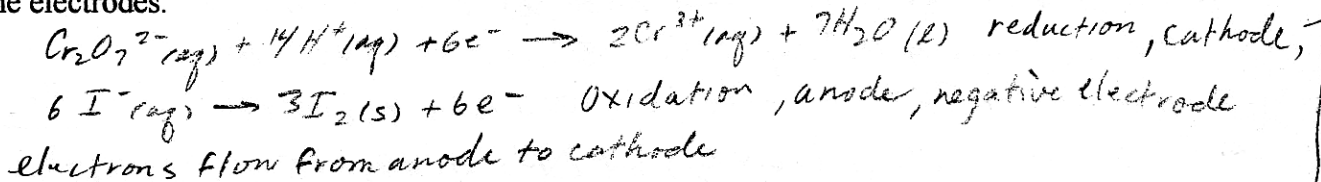 ne electrodes.
Cr₂O₇²⁻(aq) + 14H⁺(aq) + 6e⁻ → 2Cr³⁺(aq) + 7H₂O(l) reduction, cathode,
6 I⁻(aq) → 3I₂(s) + 6e⁻ Oxidation, anode, negative electrode
electrons flow from anode to cathode